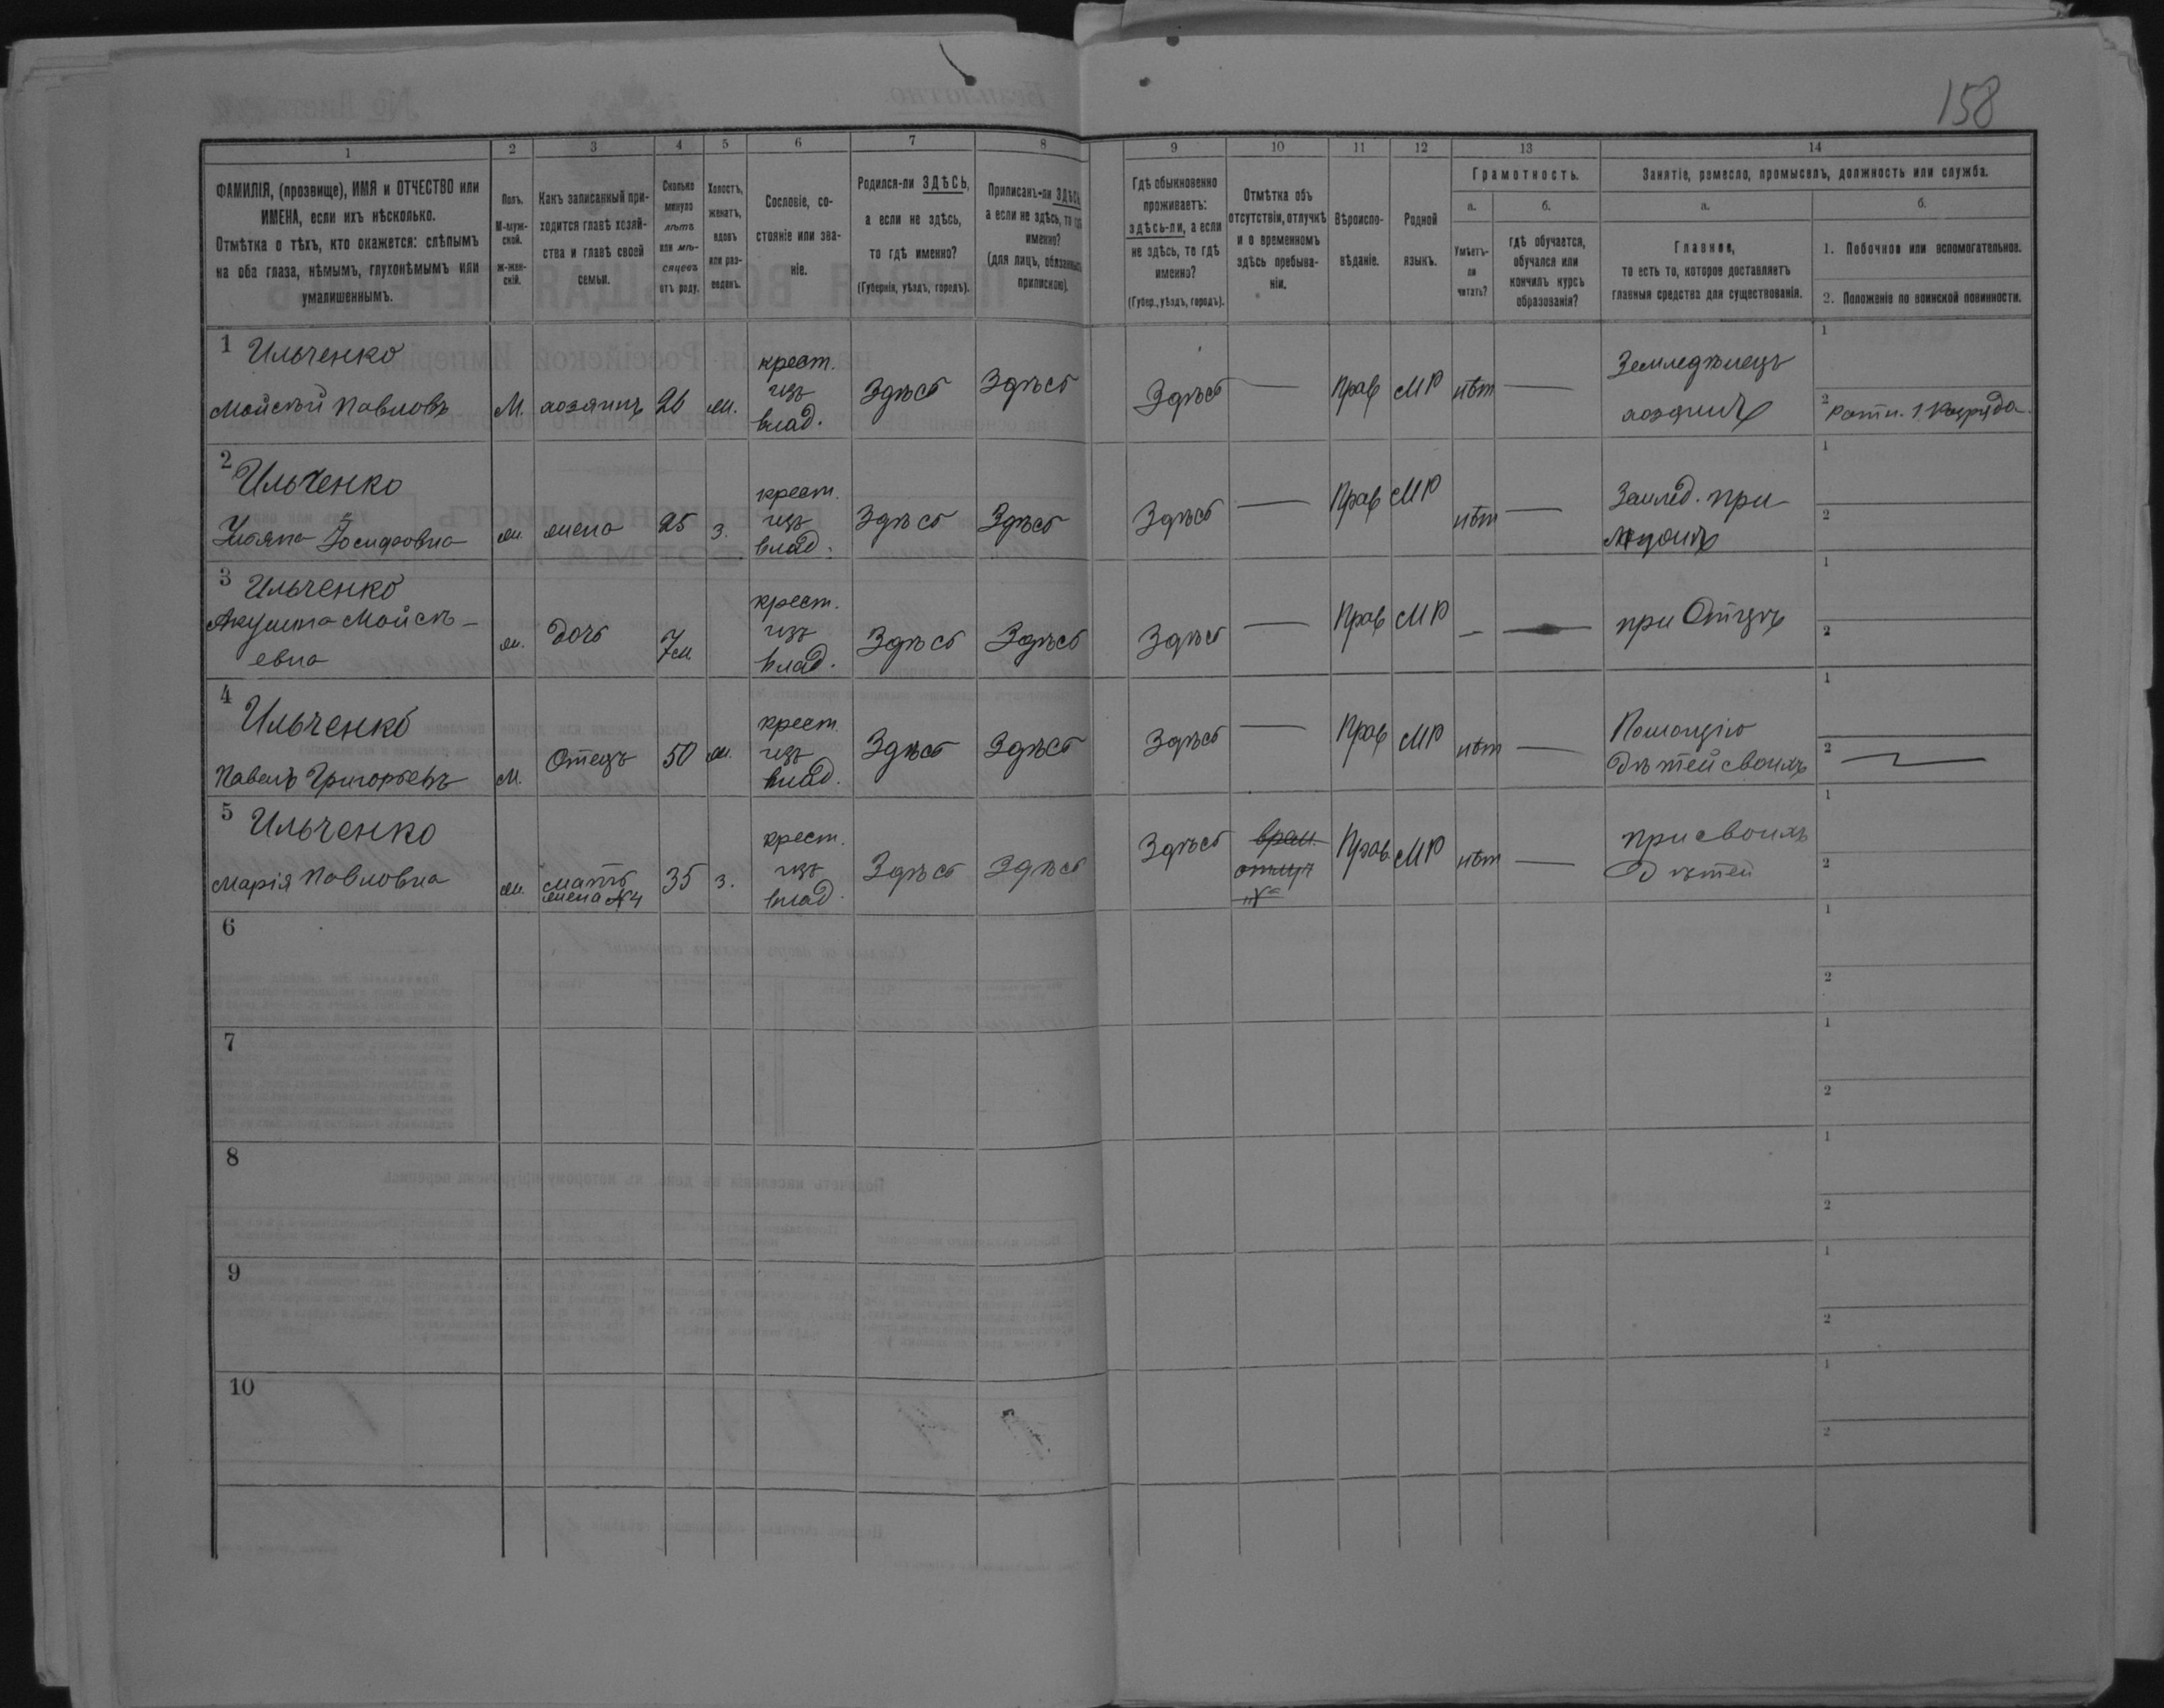 158
1 2 3 4 5 6 7 8 9 10 11 12 13 14
ФАМИЛІЯ, (прозвище), ИМЯ и ОТЧЕСТВО или
ИМЕНА, если ихъ нѣсколько.
Отмѣтка о тѣхъ, кто окажется: слѣпымъ
на оба глаза, нѣмымъ, глухонѣмымъ или
умалишеннымъ.
Полъ.
М-муж-
ской.
Ж-жен-
скій.
Какъ записанный при-
ходится главѣ хозяй-
ства и главѣ своей
семьи.
Сколько
минуло
лѣтъ
или мѣ-
сяцевъ
отъ роду.
Холостъ,
женатъ,
вдовъ
или раз-
веденъ.
Сословіе, со-
стояніе или зва-
ніе.
Родился-ли ЗДѢСЬ,
а если не здѣсь,
то гдѣ именно?
(Губернія, уѣздъ, городъ).
Приписанъ-ли ЗДѢСЬ,
а если не здѣсь, то гдѣ
именно?
(для лицъ, обязанныхъ
припискою).
Гдѣ обыкновенно
проживаетъ:
здѣсь-ли, а если
не здѣсь, то гдѣ
именно?
(Губер., уѣздъ, городъ).
Отмѣтка объ
отсутствіи, отлучкѣ
и о временномъ
здѣсь пребыва-
ніи.
Вѣроиспо-
вѣданіе.
Родной
языкъ.
Грамотность.
а.
Умѣетъ-
ли
читать?
б.
гдѣ обучается,
обучался или
кончилъ курсъ
образованія?
Занятіе, ремесло, промыселъ, должность или служба.
а.
Главное,
то есть то, которое доставляетъ
главныя средства для существованія.
б.
1. Побочное или вспомогательное.
2. Положеніе по воинской повинности.
1 Ильченко
Мойсѣй Павловъ М. хозяинъ 26 ж. крест. изъ влад. Здѣсь Здѣсь Здѣсь — Прав МР нѣт — Земледѣлецъ хозяинъ
1
2 Ратн. 1 Разряда.
2 Ильченко
Ульяна Іосифовна ж. жена 25 з. крест. изъ влад. Здѣсь Здѣсь Здѣсь — Прав МР нѣт — Землед. при Мужѣ
1
2
3 Ильченко
Акулина Мойсѣ-
евна ж. дочь 7 м. крест. изъ влад. Здѣсь Здѣсь Здѣсь — Прав МР — — при Отцѣ
1
2
4 Ильченко
Павелъ Григорьевъ М. Отецъ 50 ж. крест. изъ влад. Здѣсь Здѣсь Здѣсь — Прав МР нѣт — Помощію дѣтей своихъ
1
2 —
5 Ильченко
Марія Павловна ж. мать жена №4 35 з. крест. изъ влад. Здѣсь Здѣсь Здѣсь врем. Прав МР нѣт — при своихъ дѣтей
1
2
6
1
2
7
1
2
8
1
2
9
1
2
10
1
2